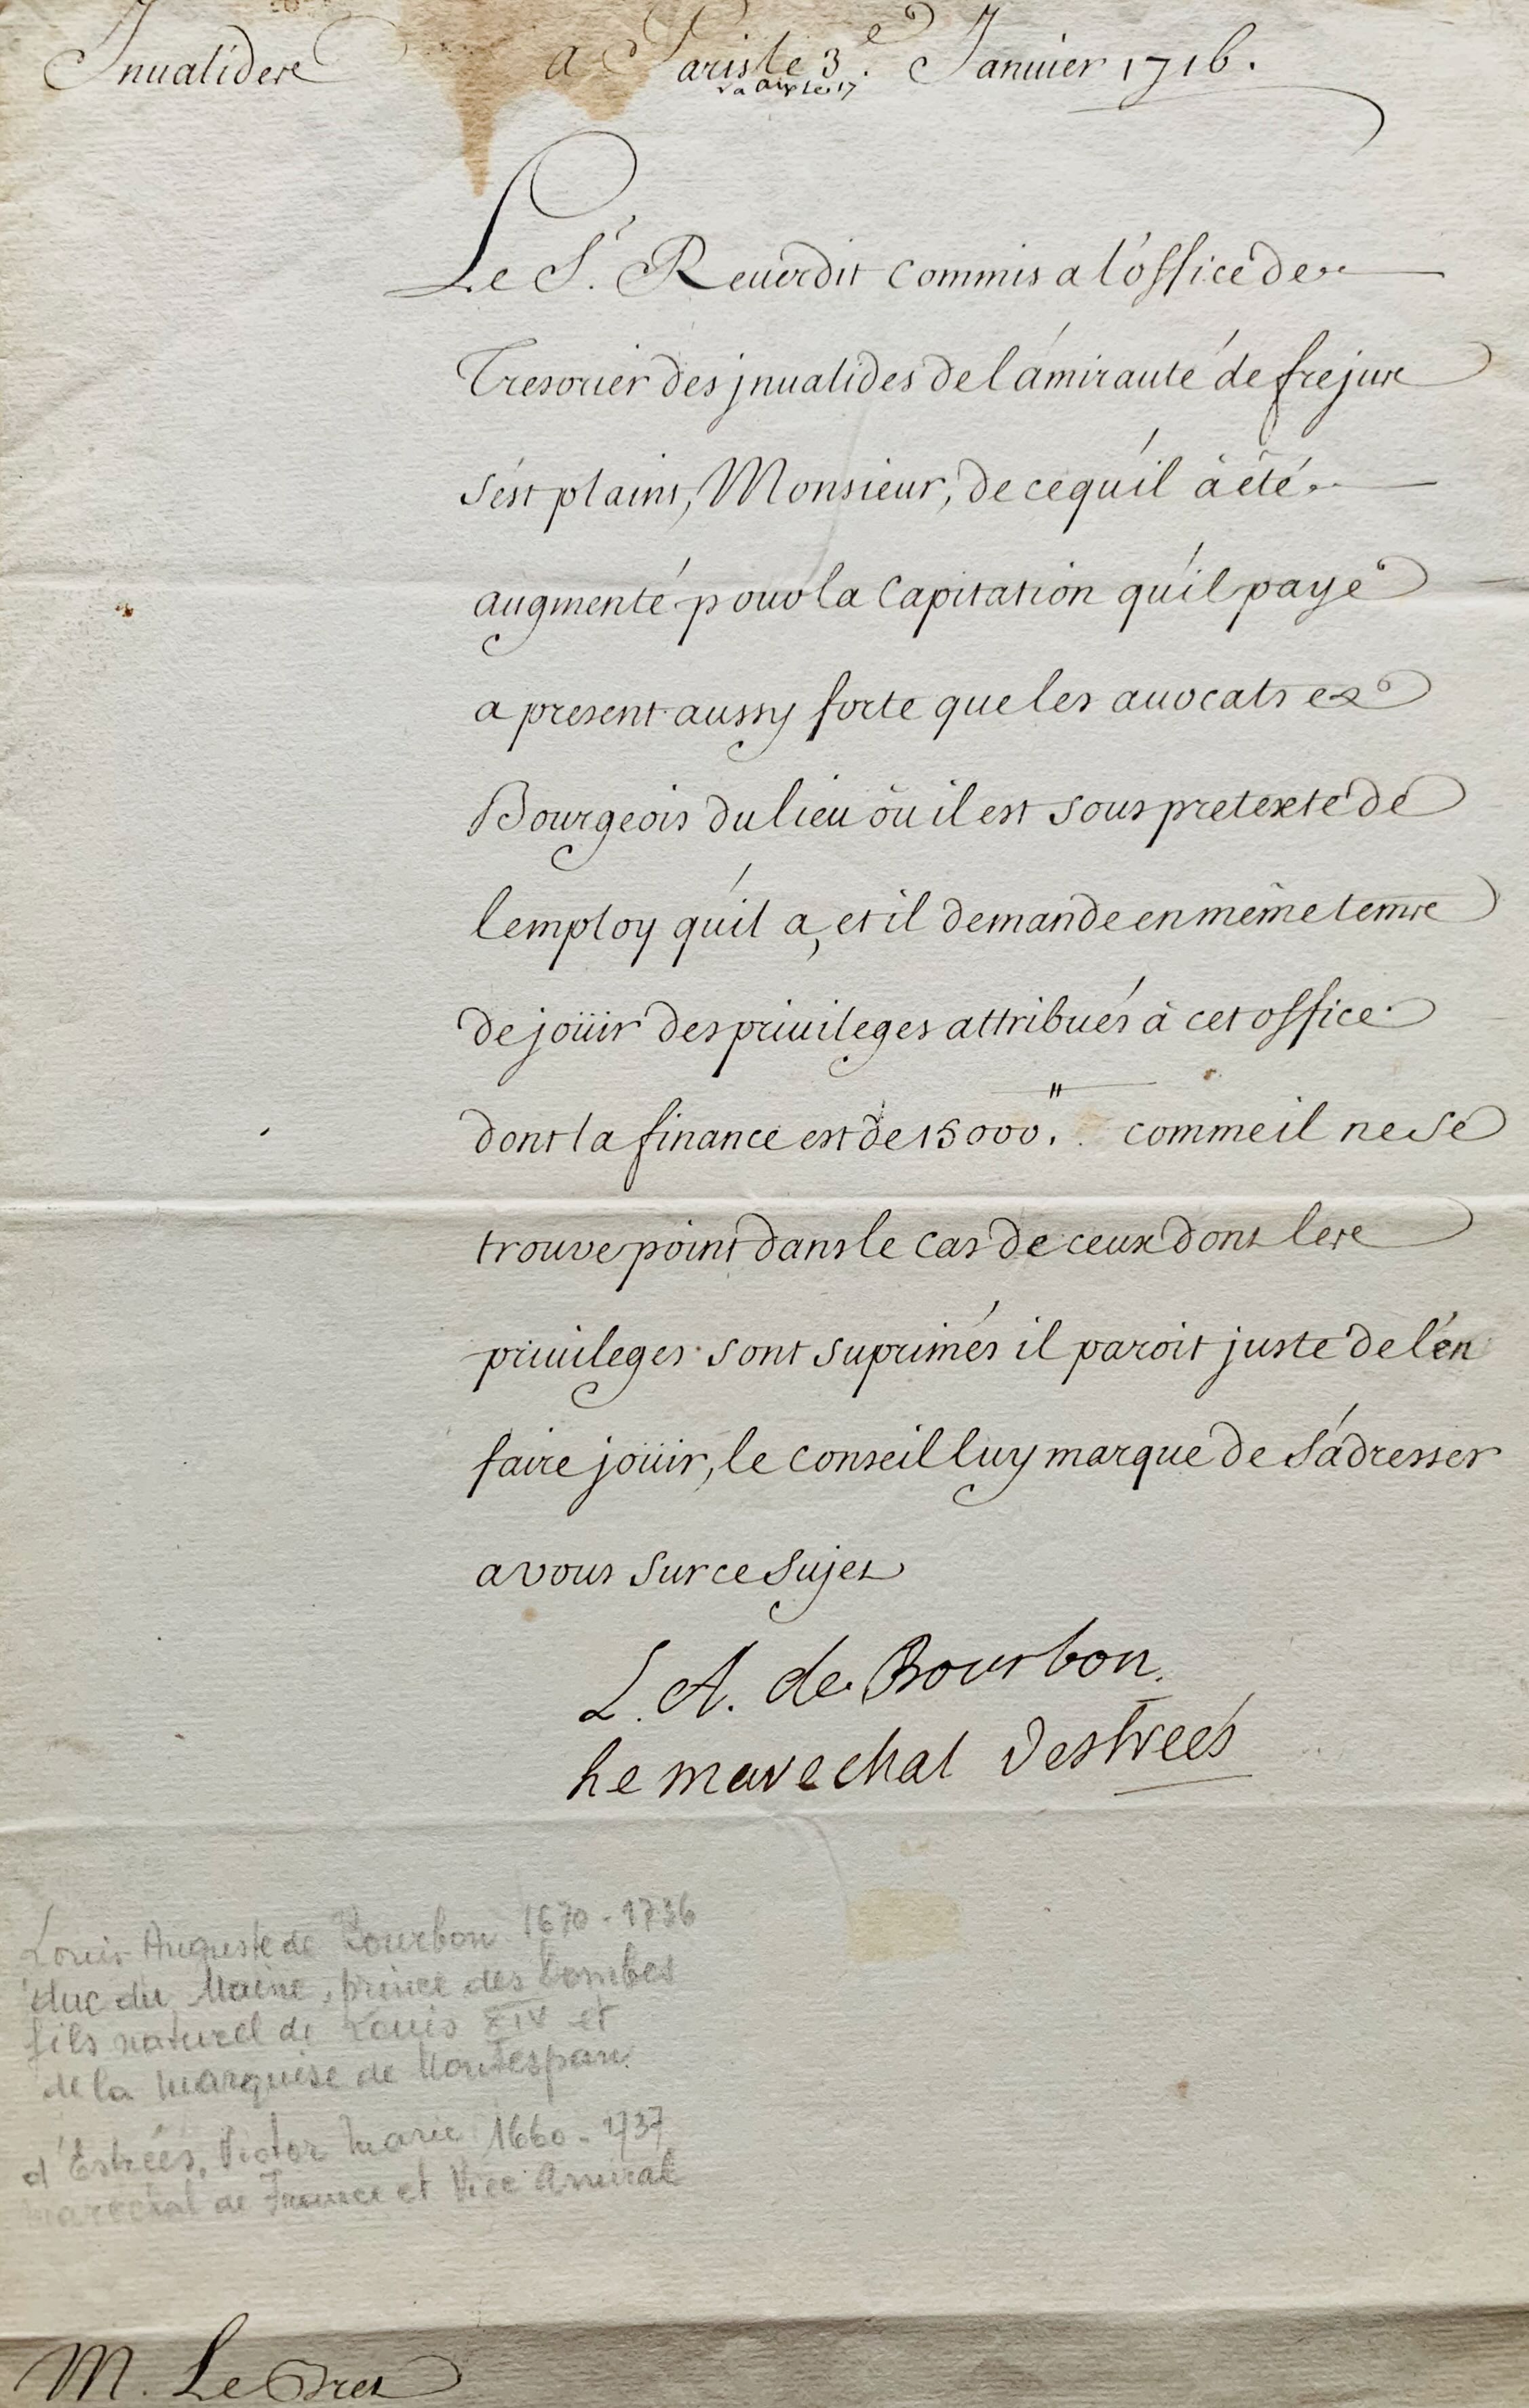 Inualides
a Paris le 3e. Januier 1716.
La aix le 17
Le Sr. Reuerdit commis a l'office de
Tresorier des jnualides de l'amirauté de frejus
s'est plaint, Monsieur, de ce qu'il à été
augmenté pour la Capitation qu'il paye
a present aussy forte que les auocats et
Bourgeois du lieu òu il est sous pretexte de
l'employ qu'il a, et il demande en même tems
de joüir des priuileges attribués à cet office
dont la finance est de 15000.# comme il ne se
trouve point dans le cas de ceux dont les
priuileges sont suprimés il paroit juste de l'en
faire joüir, le conseil luy marque de s'adresser
a vous sur ce sujet
L. A. de Bourbon.
Le marechal Destrées
Louis Auguste de Bourbon 1670-1736
duc du Maine, prince des Dombes
fils naturel de Louis XIV et
de la Marquise de Montespan.
d'Estrées, Victor Marie 1660-1737
Marechal de France et Vice Amiral
M. Le Bret